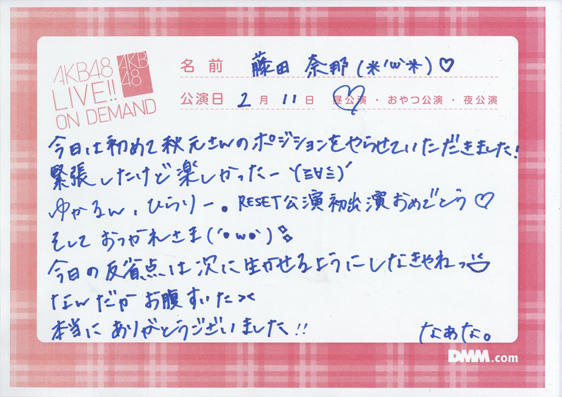 AKB48
LIVE!!
ON DEMAND
AKB
48
名前 藤田 奈那(*'ω'*)♡
公演日 2月11日 昼公演・おやつ公演・夜公演
今日は初めて秋元さんのポジションをやらせていただきました!
緊張したけど楽しかったー
ゆかるん、ひらりー。RESET公演初出演おめでとう♡
そして おつかれさま(´・ω・`)
今日の反省点は次に生かせるようにしなきゃねっ
なんだか お腹すいた><
本当に ありがとうございました!!
なぁな。
DMM.com